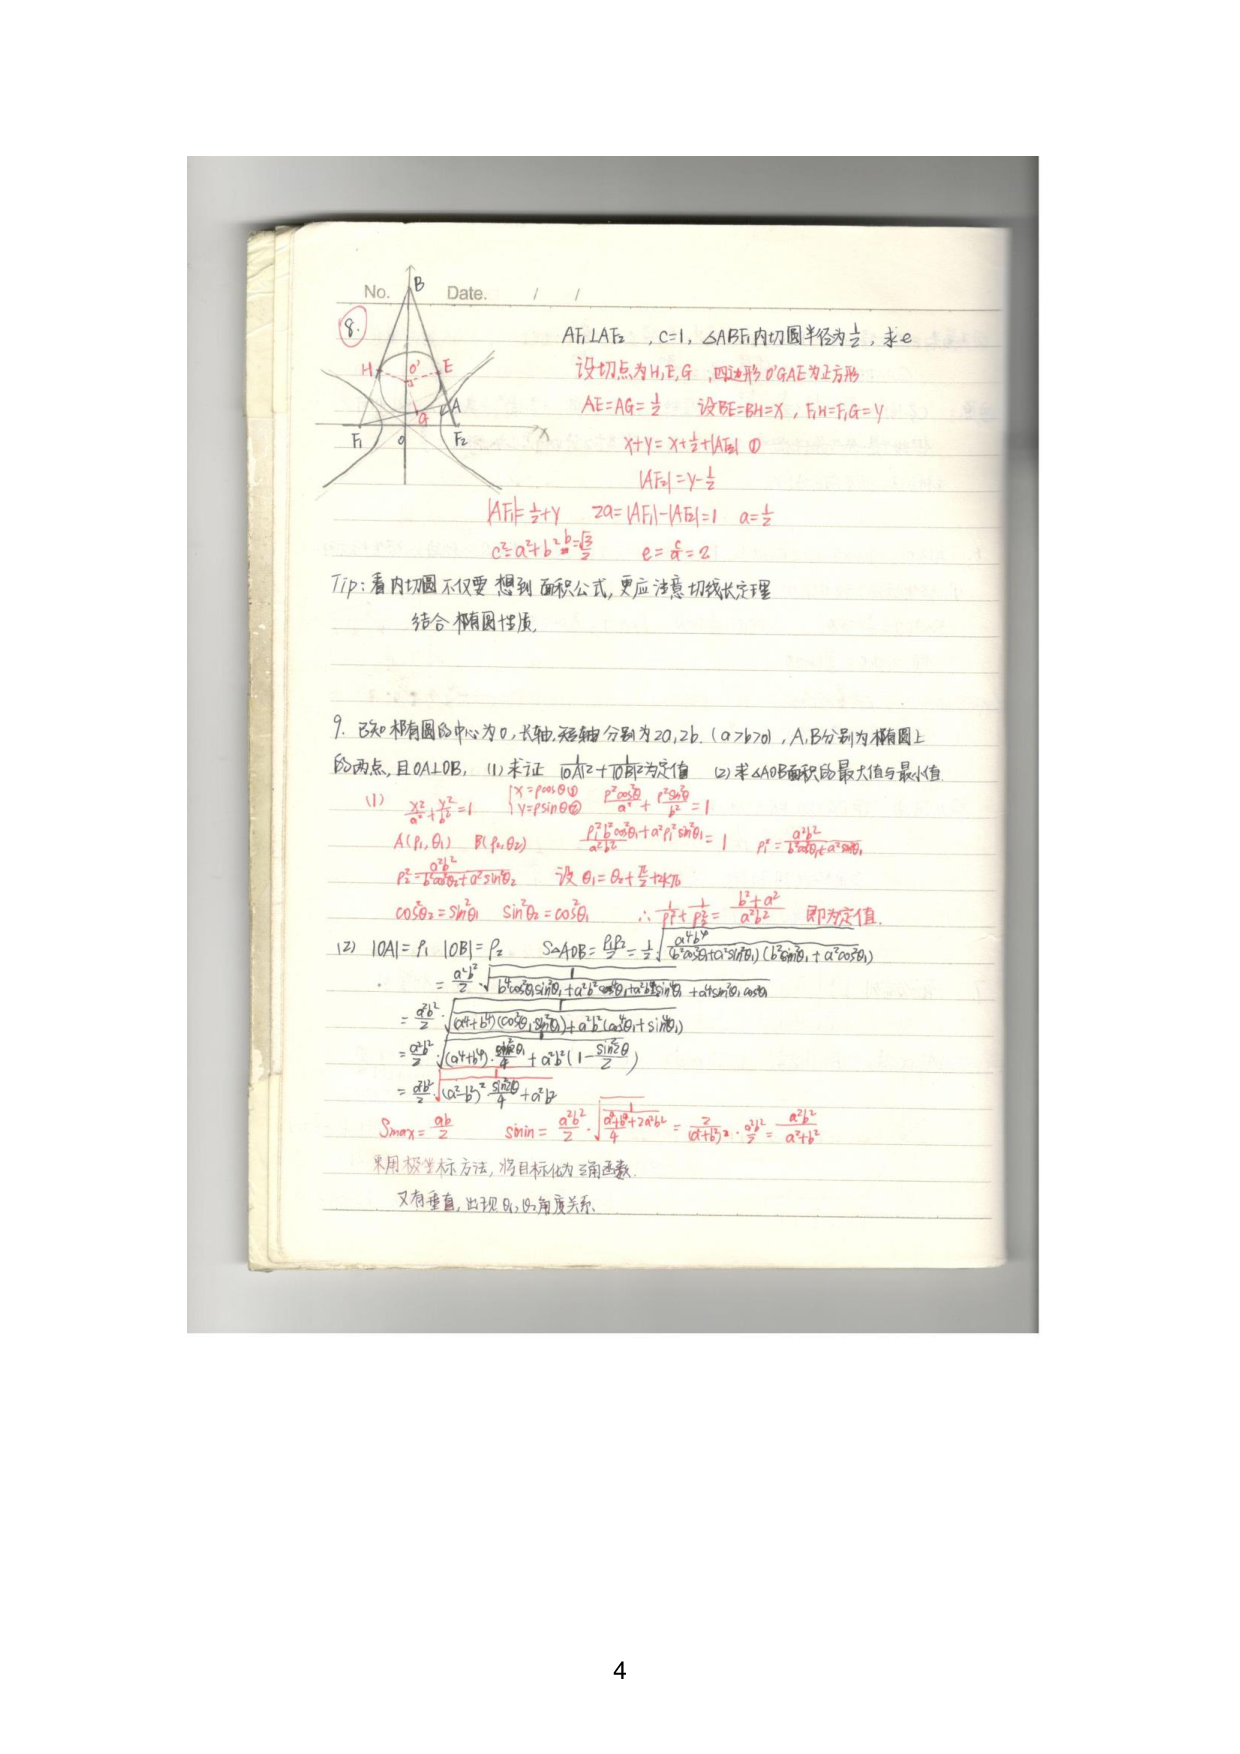 No. Date. / /
B
8.
AF₁⊥AF₂ , c=1, △ABF₁内切圆半径为1/2, 求e
H O' E
设切点为H,E,G ,四边形O'GAE为正方形
A
G
AE=AG=1/2 设BE=BH=x, F₁H=F₁G=y
F₁ O F₂ x
x+y=x+1/2+|AF₂| ①
|AF₂|=y-1/2
|AF₁|=1/2+y 2a=|AF₁|-|AF₂|=1 a=1/2
c²=a²+b² b=√3/2 e=c/a=2
Tip:看内切圆不仅要想到面积公式,更应注意切线长定理
结合椭圆性质.
9. 已知椭圆的中心为O,长轴.短轴分别为2a,2b.(a>b>0) ,A,B分别为椭圆上
的两点,且OA⊥OB. (1)求证 1/|OA|²+1/|OB|²为定值 (2)求△AOB面积的最大值与最小值
(1) x²/a²+y²/b²=1 {x=ρcosθ① y=ρsinθ② ρ²cos²θ/a²+ρ²sin²θ/b²=1
A(ρ₁,θ₁) B(ρ₂,θ₂) (ρ₁²b²cos²θ₁+a²ρ₁²sin²θ₁)/a²b²=1 ρ₁²=a²b²/(b²cos²θ₁+a²sin²θ₁)
ρ₂²=a²b²/(b²cos²θ₂+a²sin²θ₂) 设θ₁=θ₂+π/2+2kπ
cos²θ₂=sin²θ₁ sin²θ₂=cos²θ₁ ∴1/ρ₁²+1/ρ₂²=(b²+a²)/a²b² 即为定值.
(2) |OA|=ρ₁ |OB|=ρ₂ S△AOB=ρ₁ρ₂/2=1/2√(a⁴b⁴/((b²cos²θ₁+a²sin²θ₁)(b²sin²θ₁+a²cos²θ₁)))
=a²b²/2·√(1/(b⁴cos²θ₁sin²θ₁+a²b²cos⁴θ₁+a²b²sin⁴θ₁+a⁴sin²θ₁cos²θ₁))
=a²b²/2·√(1/((a⁴+b⁴)(cos²θ₁sin²θ₁)+a²b²(cos⁴θ₁+sin⁴θ₁)))
=a²b²/2·√(1/((a⁴+b⁴)·sin²2θ₁/4+a²b²(1-sin²2θ/2)))
=a²b²/2·√(1/((a²-b²)²sin²2θ/4+a²b²))
Smax=ab/2 smin=a²b²/2·√(1/((a⁴+b⁴+2a²b²)/4))=2/(a²+b²)·a²b²/2=a²b²/(a²+b²)
采用极坐标方法,将目标化为三角函数.
又有垂直,出现θ₁,θ₂角度关系.
4